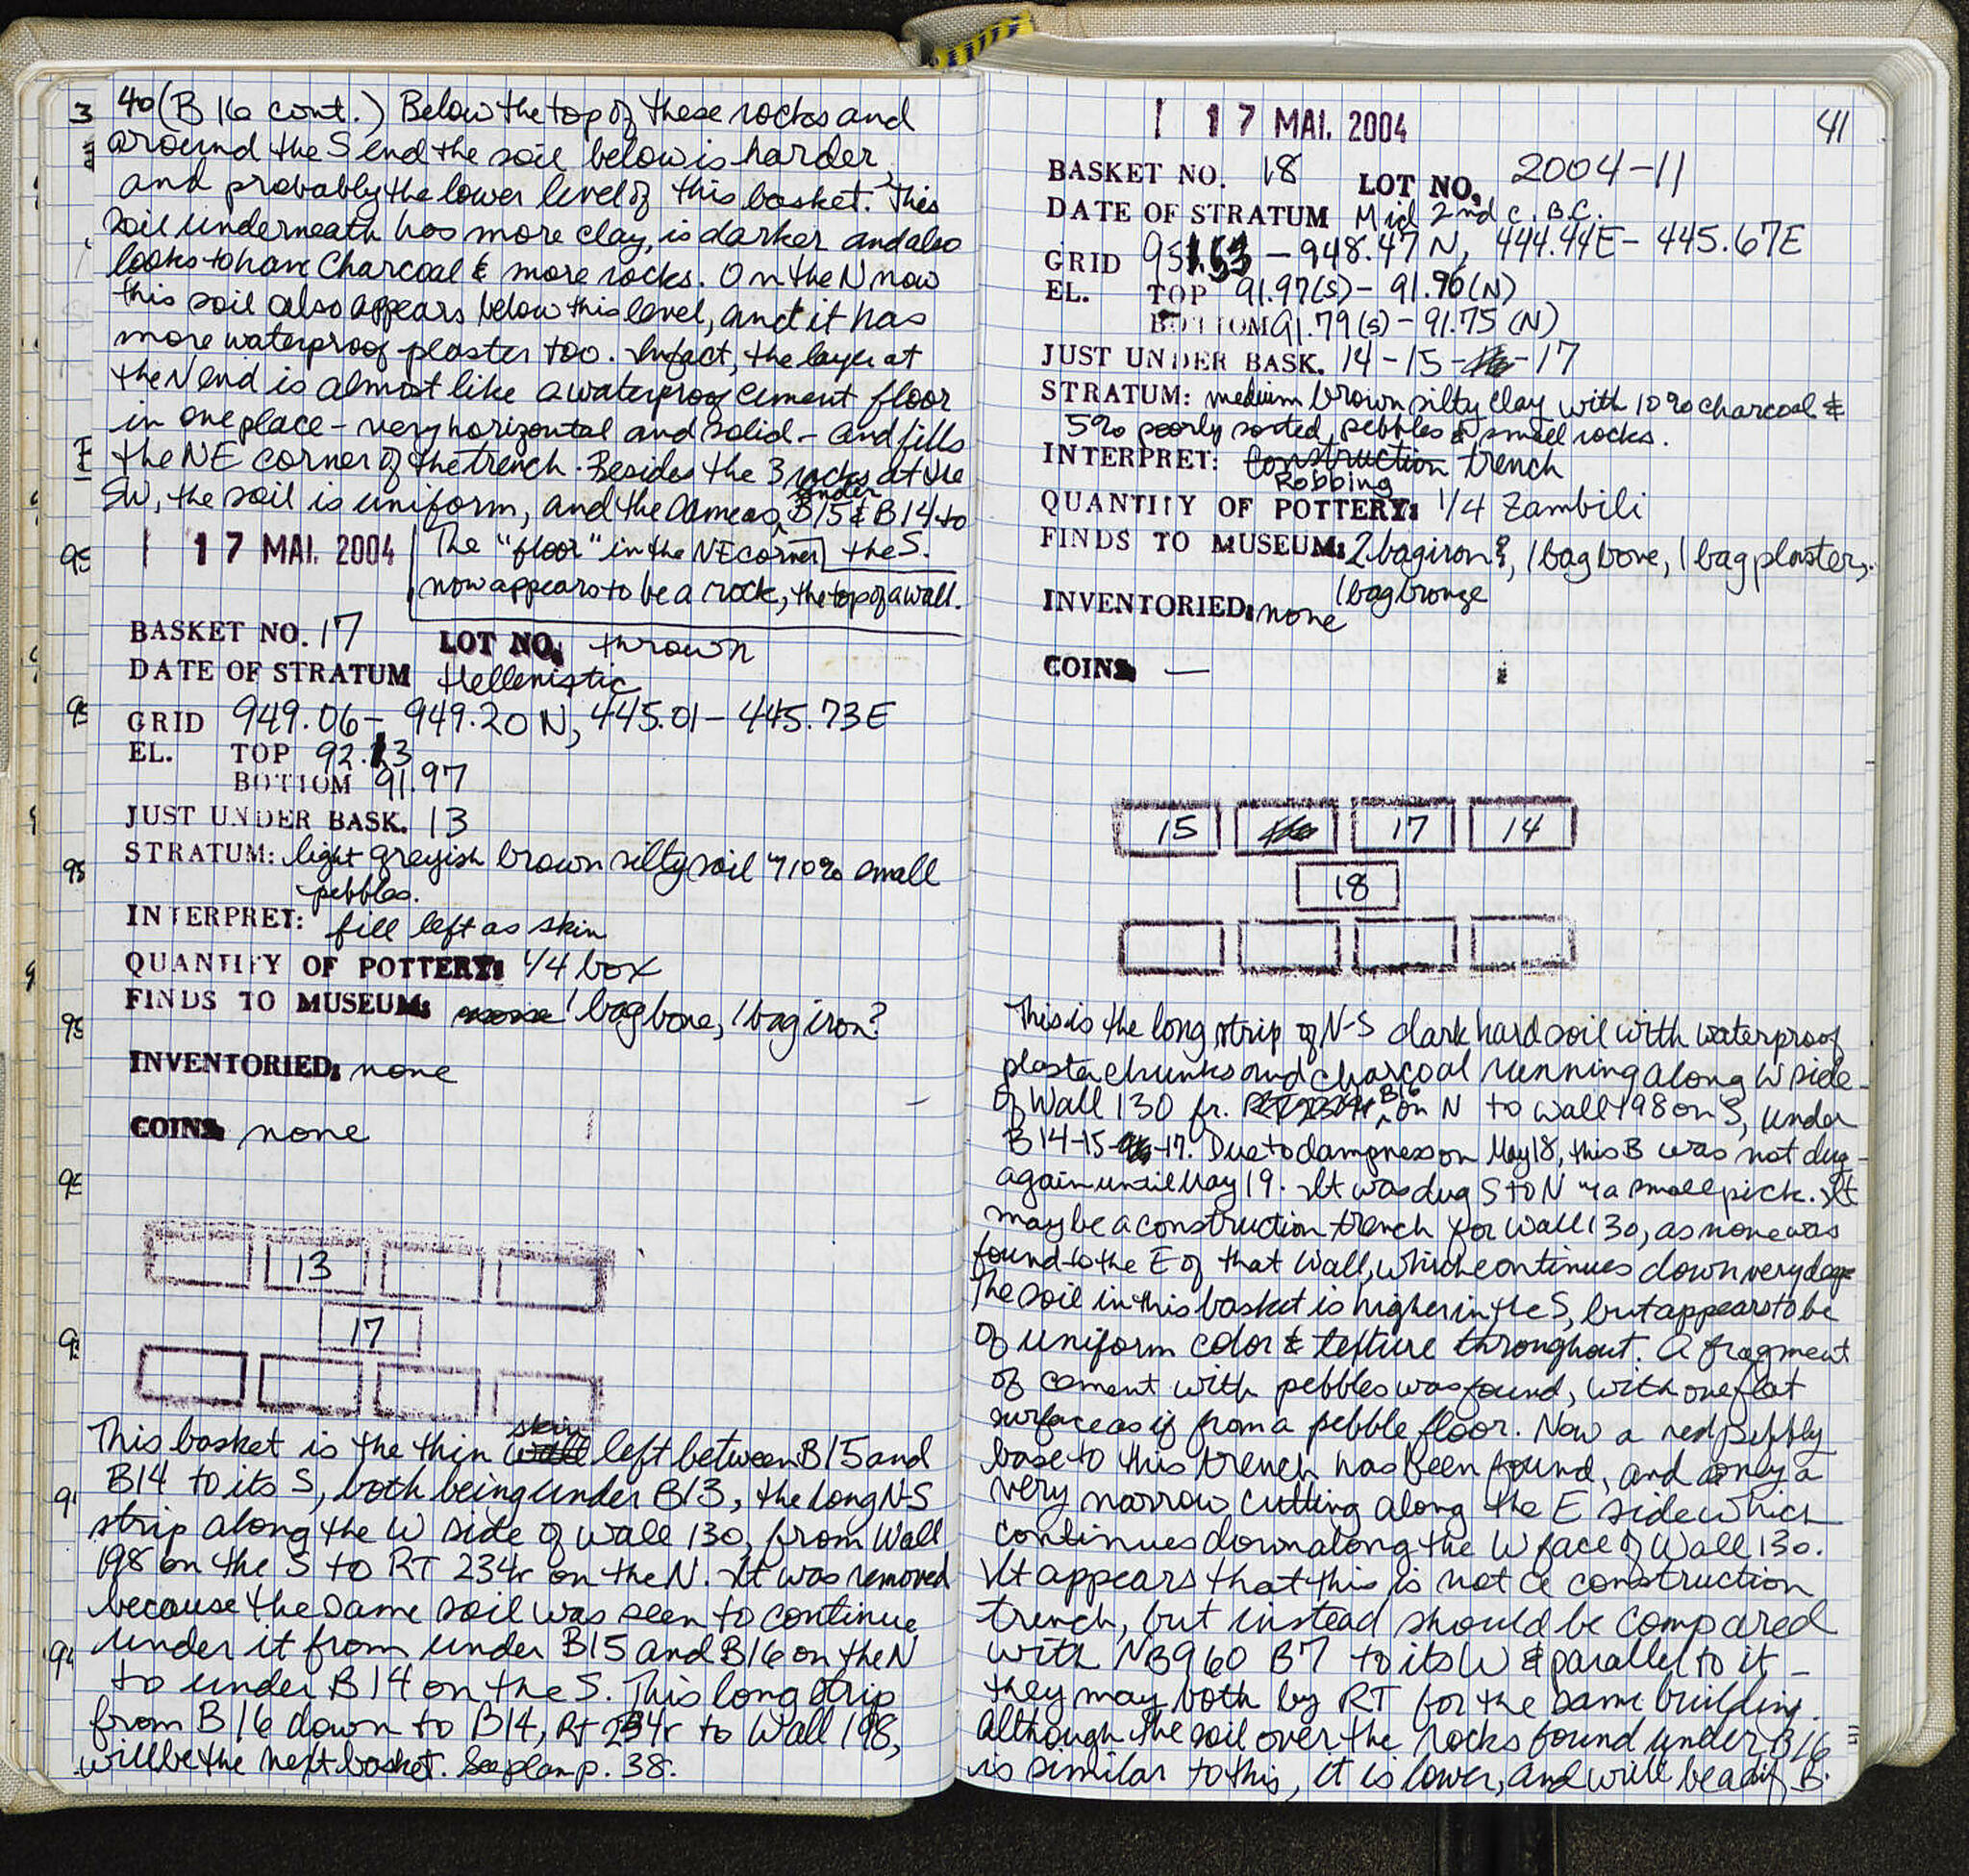 40 (B 16 cont.) Below the top of these rocks and
around the S end the soil below is harder,
and probably the lower level of this basket. This
soil underneath has more clay, is darker and also
looks to have charcoal & more rocks. On the N now
this soil also appears below this level, and it has
more waterproof plaster too. Infact, the layer at
the N end is almost like a waterproof cement floor
in one place - very horizontal and solid - and fills
the NE corner of the trench. Besides the 3 rocks at the
SW, the soil is uniform, and the same as under B15 & B14 to
the S.
1 17 MAI. 2004
The "floor" in the NE corner
now appears to be a rock, the top of a wall.
BASKET NO. 17 LOT NO. thrown
DATE OF STRATUM Hellenistic
GRID 949.06 - 949.20 N, 445.01 - 445.73 E
EL. TOP 92.13
BOTTOM 91.97
JUST UNDER BASK. 13
STRATUM: light greyish brown silty soil w/10% small
pebbles.
INTERPRET: fill left as skin
QUANTITY OF POTTERY: 1/4 box
FINDS TO MUSEUM: none 1 bag bone, 1 bag iron?
INVENTORIED: none
COINS none
13
17
This basket is the thin wall skin left between B15 and
B14 to its S, both being under B13, the long N-S
strip along the W side of Wall 130, from Wall
198 on the S to RT 234r on the N. It was removed
because the same soil was seen to continue
under it from under B15 and B16 on the N
to under B14 on the S. This long strip
from B16 down to B14, Rt 234r to Wall 198,
will be the next basket. See plan p. 38.
1 17 MAI. 2004 41
BASKET NO. 18 LOT NO. 2004-11
DATE OF STRATUM Mid 2nd c. B.C.
GRID 951.63 - 948.47 N, 444.44E - 445.67E
EL. TOP 91.97(S) - 91.96(N)
BOTTOM 91.79(S) - 91.75 (N)
JUST UNDER BASK. 14-15-16-17
STRATUM: medium brown silty clay with 10% charcoal &
5% poorly sorted pebbles & small rocks.
INTERPRET: Construction trench
Robbing
QUANTITY OF POTTERY: 1/4 Zambili
FINDS TO MUSEUM: 2 bag iron?, 1 bag bone, 1 bag plaster,
1 bag bronze
INVENTORIED: none
COINS —
15 16 17 14
18
This is the long strip of N-S dark hard soil with waterproof
plaster chunks and charcoal running along W side
of Wall 130 fr. RT 234r B16 on N to wall 198 on S, under
B 14-15-16-17. Due to dampness on May 18, this B was not dug
again until May 19. It was dug S to N w/ a small pick. It
may be a construction trench for Wall 130, as none was
found to the E of that Wall, which continues down very deep
The soil in this basket is higher in the S, but appears to be
of uniform color & texture throughout. A fragment
of cement with pebbles was found, with one flat
surface as if from a pebble floor. Now a red pebbly
base to this trench has been found, and only a
very narrow cutting along the E side which
continues down along the W face of Wall 130.
It appears that this is not a construction
trench, but instead should be compared
with NB960 B7 to its W & parallel to it -
they may both by RT for the same building.
although the soil over the rocks found under B16
is similar to this, it is lower, and will be a dif. B.